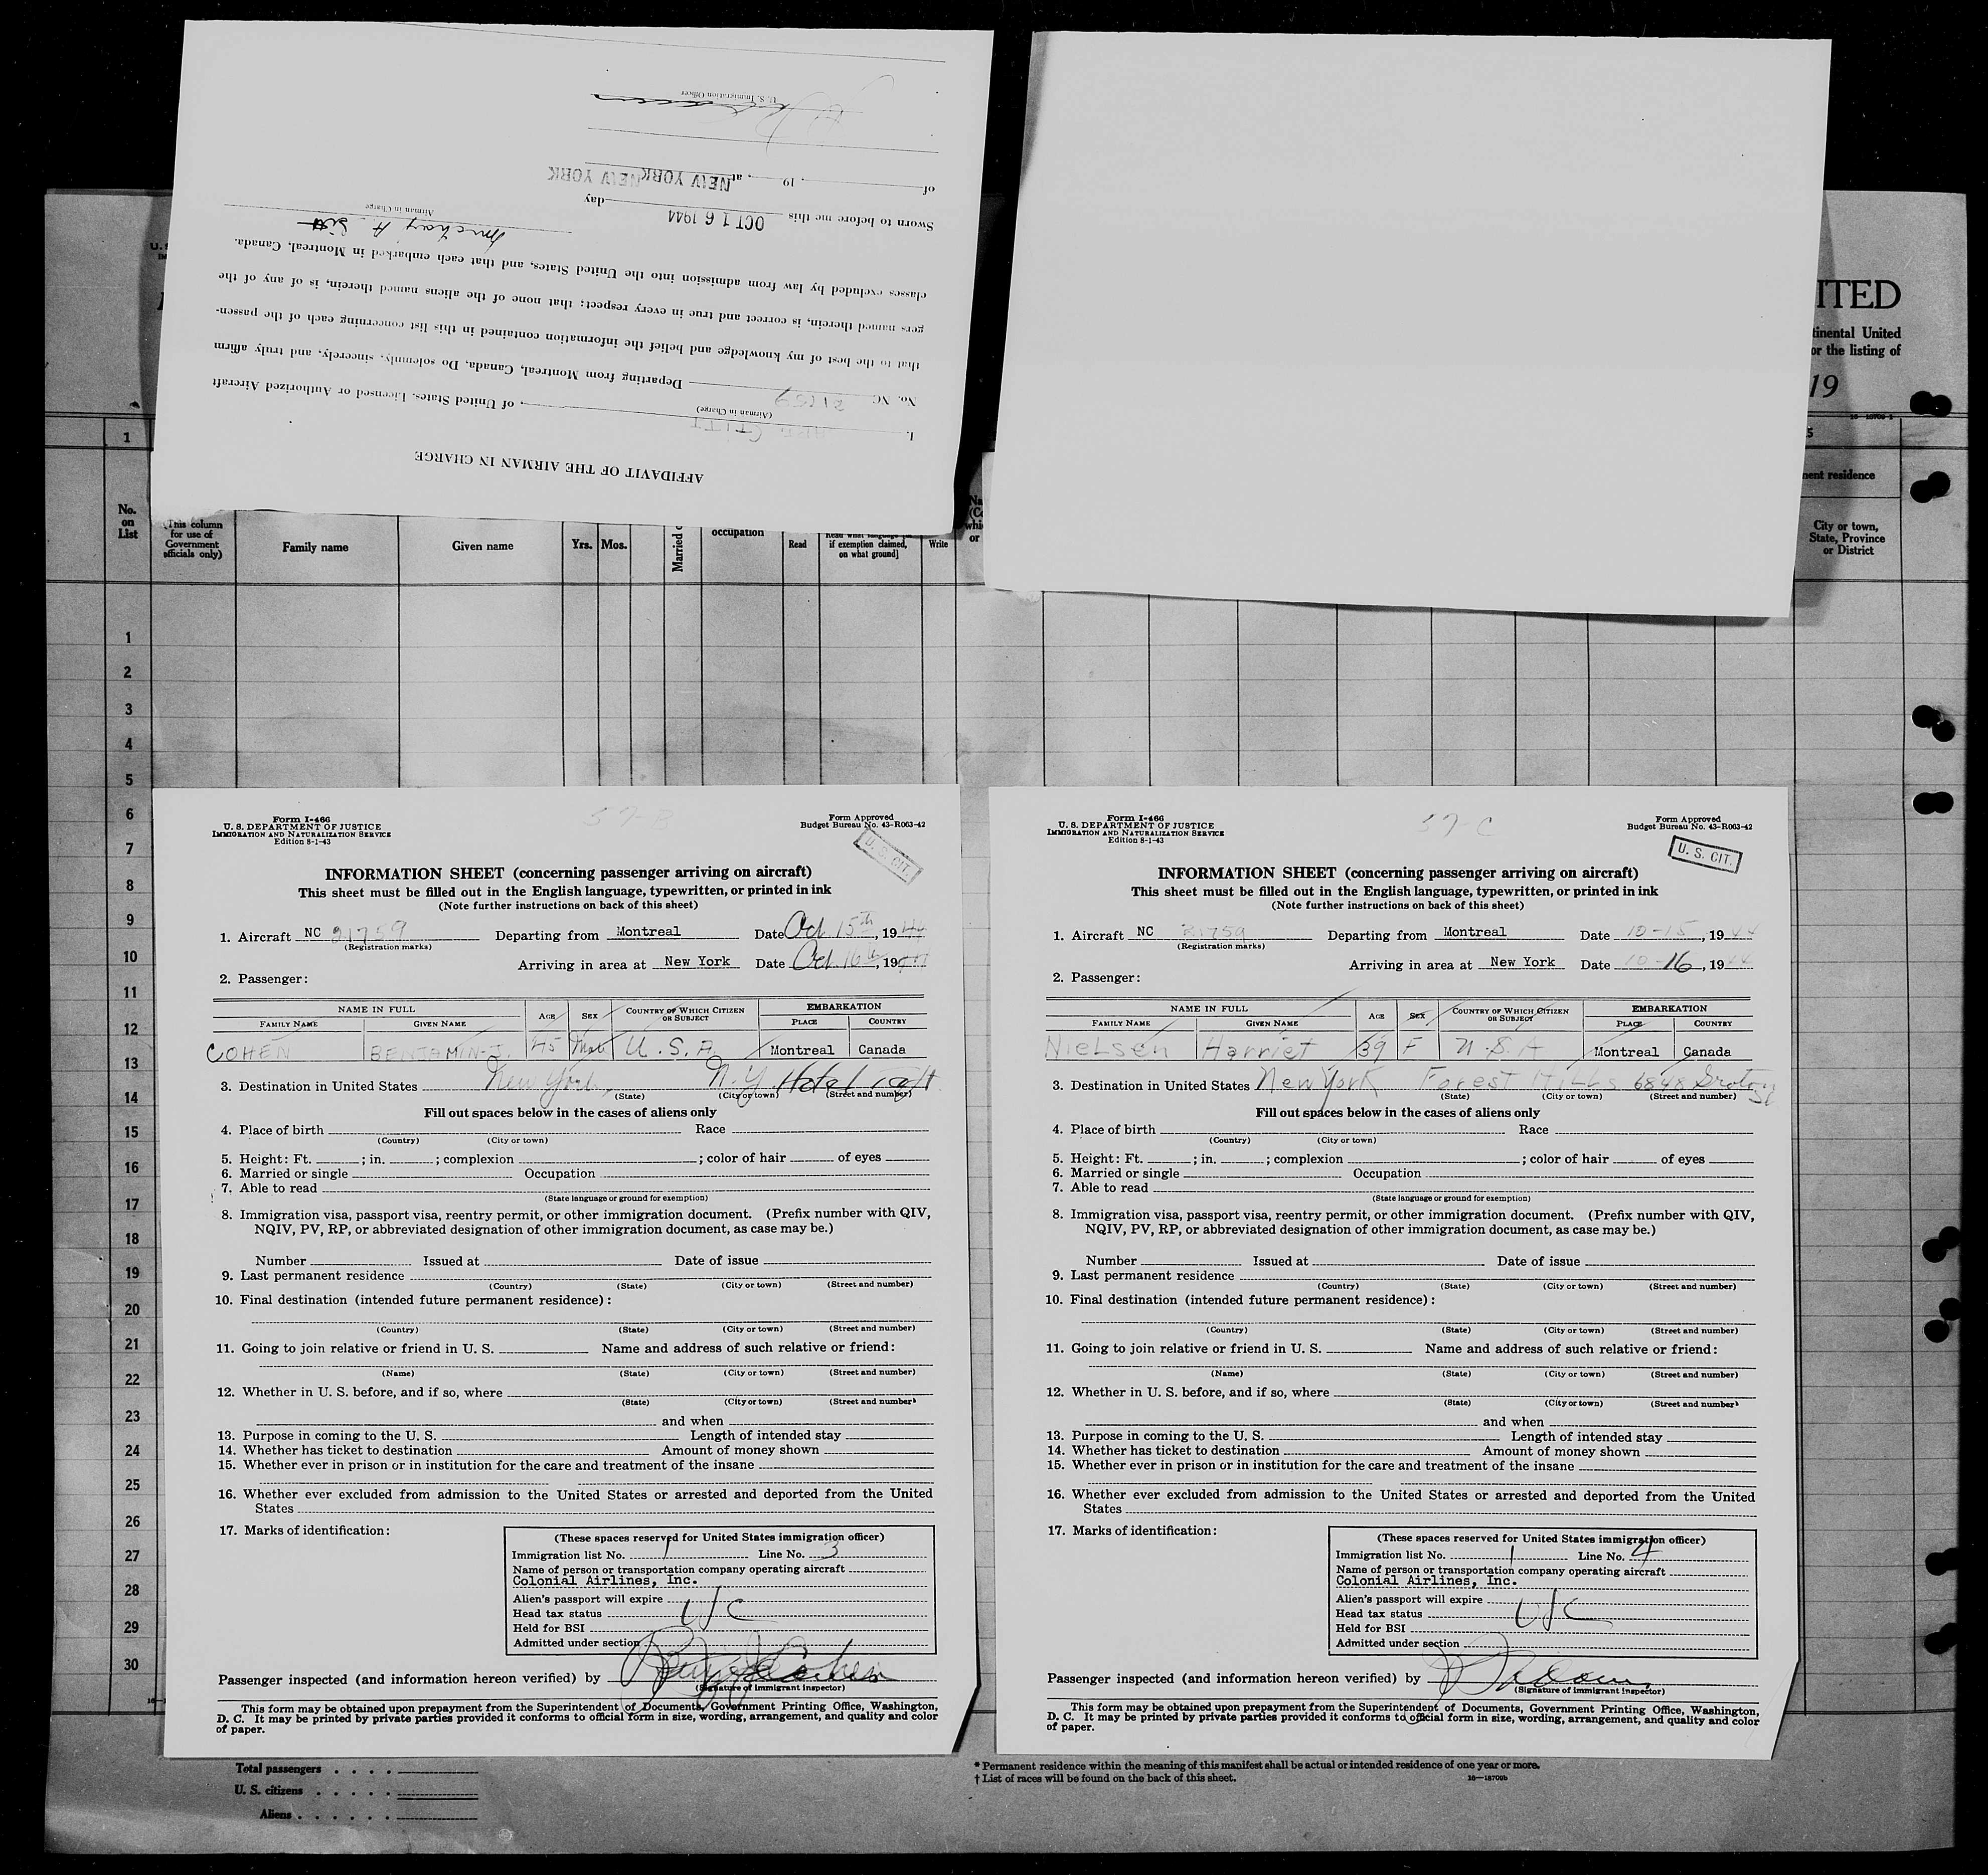 U. S. Immigration Officer
of , 19 , at NEW YORK NEW YORK
Sworn to before me this OCT 16 1944 day
Airman in Charge
classes excluded by law from admission into the United States, and that each embarked in Montreal, Canada.
gers named therein, is correct and true in every respect; that none of the aliens named therein, is of any of the
that to the best of my knowledge and belief the information contained in this list concerning each of the passen-
No. NC Departing from Montreal, Canada, Do solemnly, sincerely, and truly affirm
(Airman in Charge)
I, , of United States, Licensed or Authorized Aircraft
AFFIDAVIT OF THE AIRMAN IN CHARGE
ITED
tinental United
or the listing of
19
1
No.
on
List
(This column
for use of
Government
officials only)
Family name
Given name
Yrs. Mos.
occupation
Read
if exemption claimed,
on what ground]
Write
nent residence
City or town,
State, Province
or District
1
2
3
4
5
6
7
8
9
10
11
12
13
14
15
16
17
18
19
20
21
22
23
24
25
26
27
28
29
30
Form I-466
U. S. DEPARTMENT OF JUSTICE
IMMIGRATION AND NATURALIZATION SERVICE
Edition 8-1-43
57-B
Form Approved
Budget Bureau No. 43-R063-42
U. S. CIT.
INFORMATION SHEET (concerning passenger arriving on aircraft)
This sheet must be filled out in the English language, typewritten, or printed in ink
(Note further instructions on back of this sheet)
1. Aircraft NC 21759 Departing from Montreal Date Oct 15th, 1944
(Registration marks)
Arriving in area at New York Date Oct 16th, 1944
2. Passenger:
NAME IN FULL AGE SEX COUNTRY OF WHICH CITIZEN OR SUBJECT EMBARKATION
FAMILY NAME GIVEN NAME PLACE COUNTRY
COHEN BENJAMIN-J. 45 Male U.S.A Montreal Canada
3. Destination in United States New York, N.Y. Hotel Taft
(State) (City or town) (Street and number)
Fill out spaces below in the cases of aliens only
4. Place of birth Race
(Country) (City or town)
5. Height: Ft. ; in. ; complexion ; color of hair of eyes
6. Married or single Occupation
7. Able to read
(State language or ground for exemption)
8. Immigration visa, passport visa, reentry permit, or other immigration document. (Prefix number with QIV,
NQIV, PV, RP, or abbreviated designation of other immigration document, as case may be.)
Number Issued at Date of issue
9. Last permanent residence
(Country) (State) (City or town) (Street and number)
10. Final destination (intended future permanent residence):
(Country) (State) (City or town) (Street and number)
11. Going to join relative or friend in U. S. Name and address of such relative or friend:
(Name) (State) (City or town) (Street and number)
12. Whether in U. S. before, and if so, where
(State) (City or town) (Street and number)
and when
13. Purpose in coming to the U. S. Length of intended stay
14. Whether has ticket to destination Amount of money shown
15. Whether ever in prison or in institution for the care and treatment of the insane
16. Whether ever excluded from admission to the United States or arrested and deported from the United
States
17. Marks of identification:
(These spaces reserved for United States immigration officer)
Immigration list No. 1 Line No. 3
Name of person or transportation company operating aircraft
Colonial Airlines, Inc.
Alien's passport will expire
Head tax status U/C
Held for BSI
Admitted under section
Passenger inspected (and information hereon verified) by Benj J Cohen
(Signature of immigrant inspector)
This form may be obtained upon prepayment from the Superintendent of Documents, Government Printing Office, Washington,
D. C. It may be printed by private parties provided it conforms to official form in size, wording, arrangement, and quality and color
of paper.
Form I-466
U. S. DEPARTMENT OF JUSTICE
IMMIGRATION AND NATURALIZATION SERVICE
Edition 8-1-43
57-C
Form Approved
Budget Bureau No. 43-R063-42
U. S. CIT.
INFORMATION SHEET (concerning passenger arriving on aircraft)
This sheet must be filled out in the English language, typewritten, or printed in ink
(Note further instructions on back of this sheet)
1. Aircraft NC 21759 Departing from Montreal Date 10-15, 1944
(Registration marks)
Arriving in area at New York Date 10-16, 1944
2. Passenger:
NAME IN FULL AGE SEX COUNTRY OF WHICH CITIZEN OR SUBJECT EMBARKATION
FAMILY NAME GIVEN NAME PLACE COUNTRY
Nielsen Harriet 39 F U.S.A Montreal Canada
3. Destination in United States New York Forest Hills 6848 Groton St
(State) (City or town) (Street and number)
Fill out spaces below in the cases of aliens only
4. Place of birth Race
(Country) (City or town)
5. Height: Ft. ; in. ; complexion ; color of hair of eyes
6. Married or single Occupation
7. Able to read
(State language or ground for exemption)
8. Immigration visa, passport visa, reentry permit, or other immigration document. (Prefix number with QIV,
NQIV, PV, RP, or abbreviated designation of other immigration document, as case may be.)
Number Issued at Date of issue
9. Last permanent residence
(Country) (State) (City or town) (Street and number)
10. Final destination (intended future permanent residence):
(Country) (State) (City or town) (Street and number)
11. Going to join relative or friend in U. S. Name and address of such relative or friend:
(Name) (State) (City or town) (Street and number)
12. Whether in U. S. before, and if so, where
(State) (City or town) (Street and number)
and when
13. Purpose in coming to the U. S. Length of intended stay
14. Whether has ticket to destination Amount of money shown
15. Whether ever in prison or in institution for the care and treatment of the insane
16. Whether ever excluded from admission to the United States or arrested and deported from the United
States
17. Marks of identification:
(These spaces reserved for United States immigration officer)
Immigration list No. 1 Line No. 4
Name of person or transportation company operating aircraft
Colonial Airlines, Inc.
Alien's passport will expire
Head tax status U/C
Held for BSI
Admitted under section
Passenger inspected (and information hereon verified) by
(Signature of immigrant inspector)
This form may be obtained upon prepayment from the Superintendent of Documents, Government Printing Office, Washington,
D. C. It may be printed by private parties provided it conforms to official form in size, wording, arrangement, and quality and color
of paper.
Total passengers
U. S. citizens
Aliens
* Permanent residence within the meaning of this manifest shall be actual or intended residence of one year or more.
† List of races will be found on the back of this sheet.
16—18709b